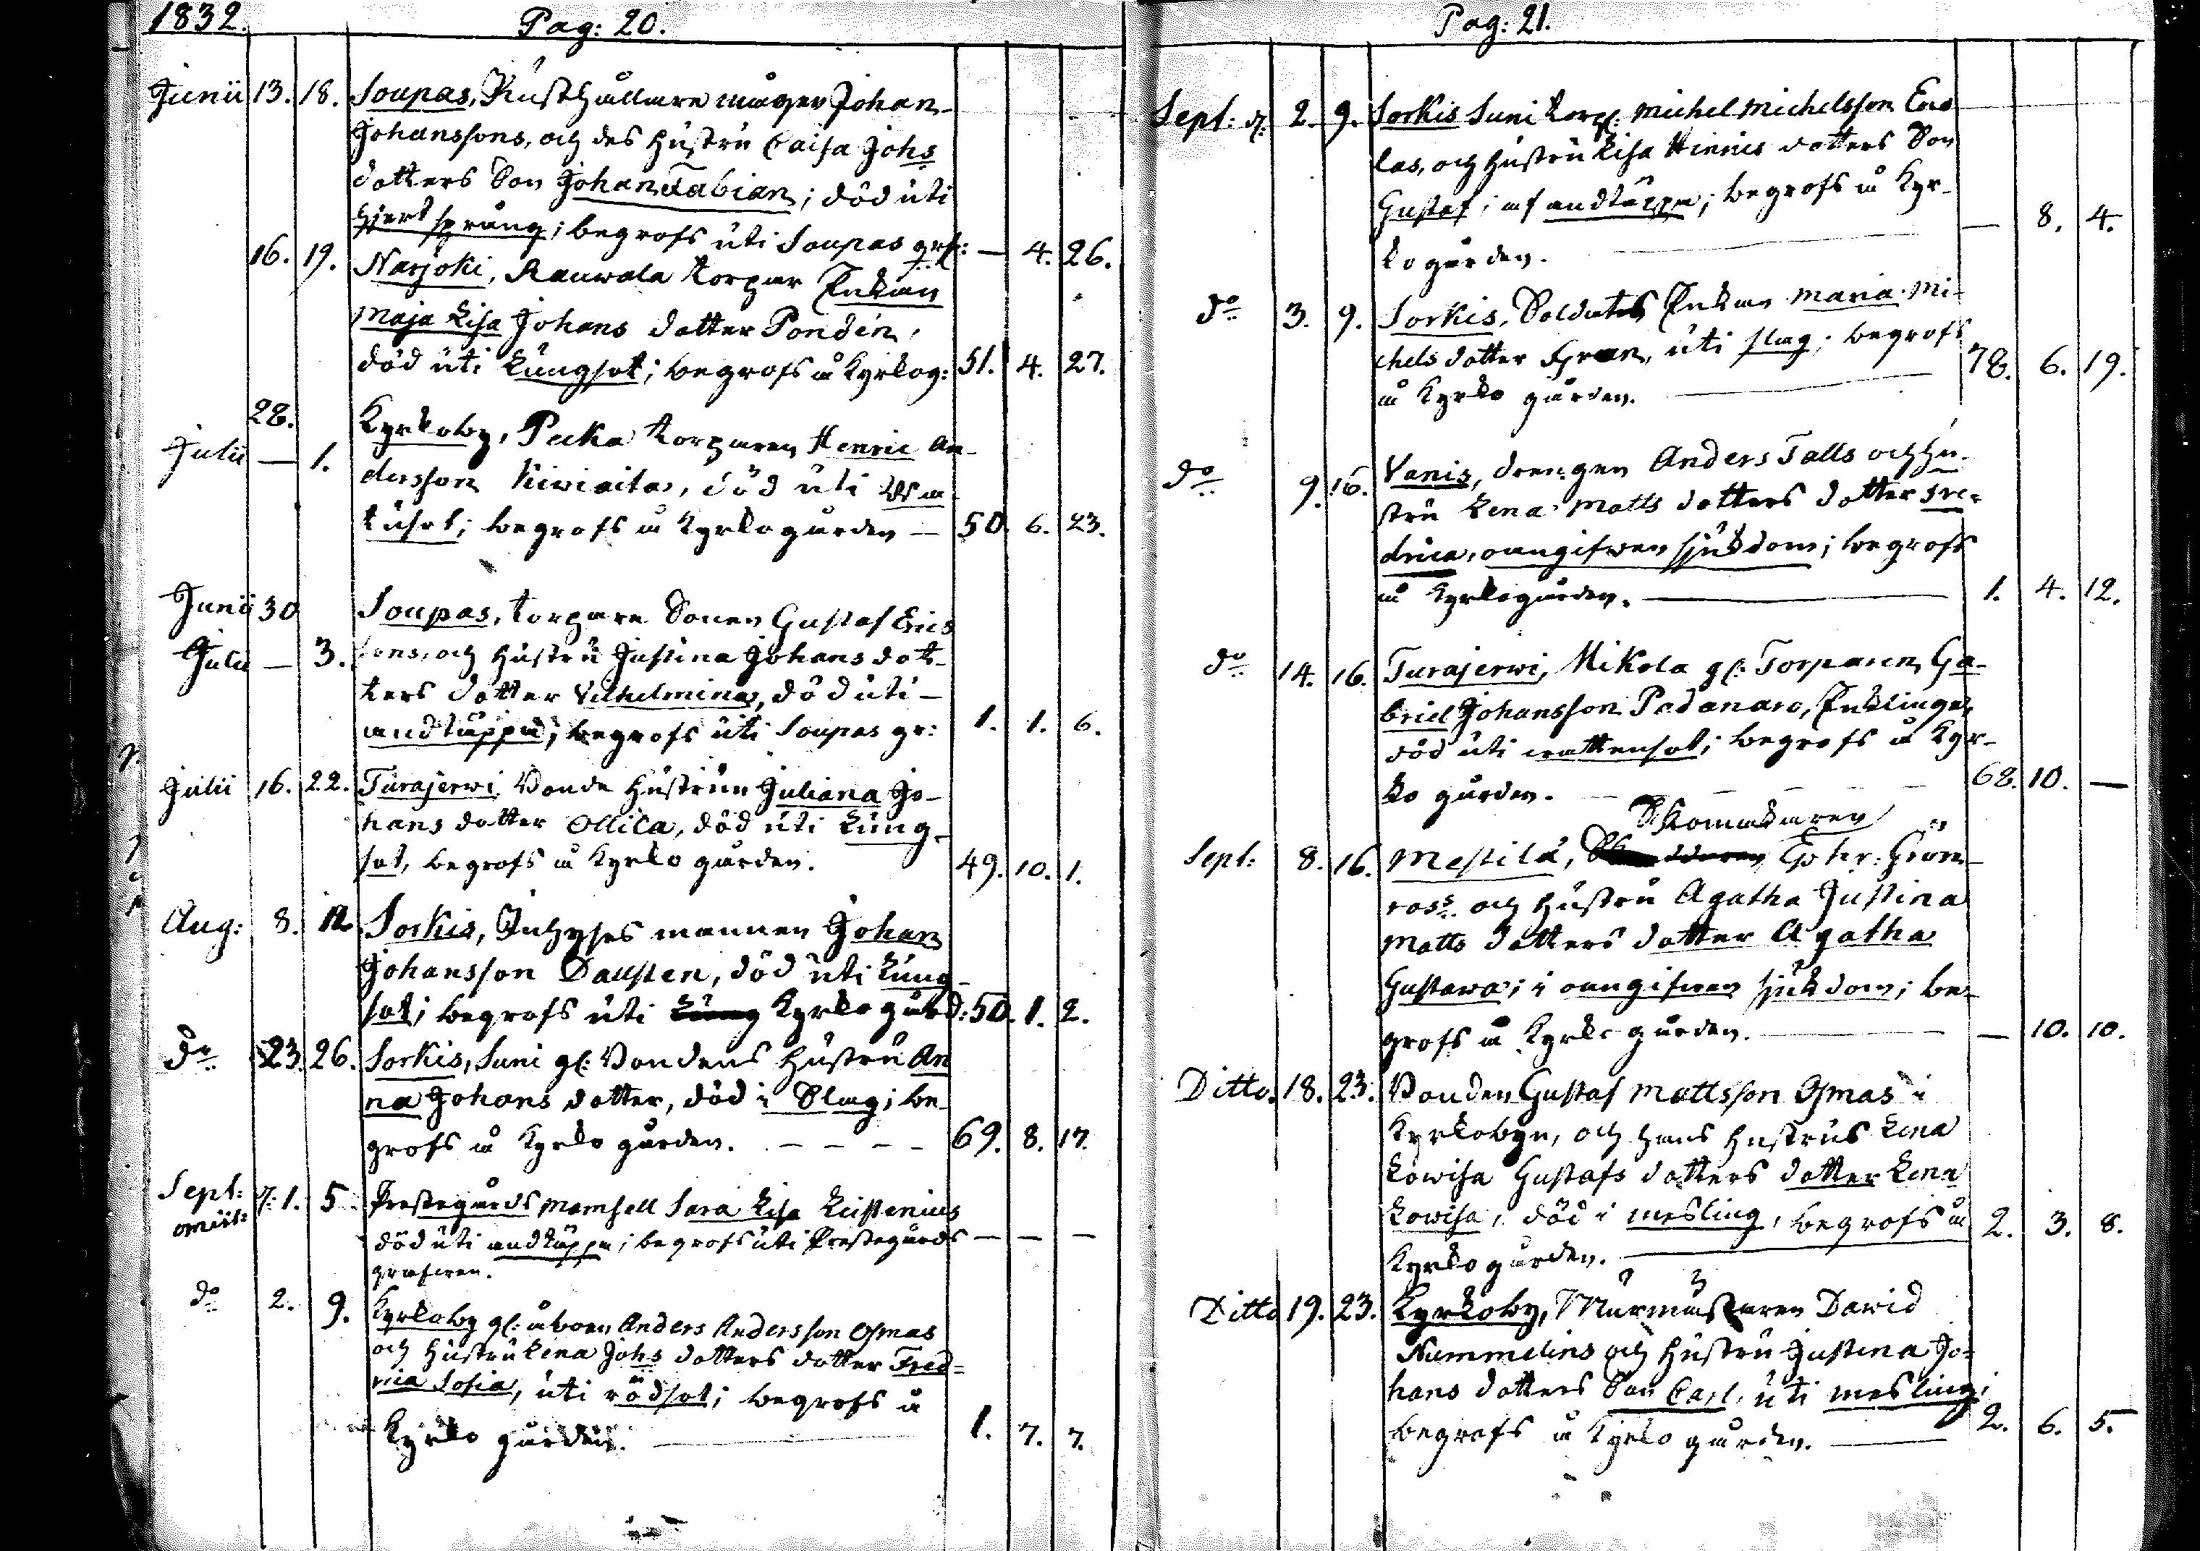 1832. Pag: 20.
Junii 13. 18. Soupas, Rusthållare mågen Johan
Johanssons, och des hustru Caisa Johs
dotters Son Johan Fabian; död uti
hjertsprång; begrofs uti Soupas grf: — 4. 26.
16. 19. Narjoki, Rauwola torpar Enkan
Maja Lisa Johans dotter Pondén,
död uti Lungsot; begrofs å Kyrkog: 51. 4. 27.
28. Kyrkoby, Peka torparen Henric An-
Julii — 1. dersson Kiwiaita, död uti
tusot; begrofs å Kyrkogården — 50. 6. 23.
Junii 30 Soupas, torpare Sonen Gustaf Erics
Julii — 3. sons, och hustru Justina Johans dot-
ters dotter Vilhelmina, död uti —
andtäppa; begrofs uti Soupas gr: 1. 1. 6.
Julii 16. 22. Turajerwi Bonde hustrun Juliana Jo-
hans dotter Ollila, död uti Lung-
sot, begrofs å Kyrko gården. 49. 10. 1.
Aug: 8. 12 Sorkis, Inhyses mannen Johan
Johansson Dausten, död uti Lung-
sot; begrofs uti Lung Kyrko gård: 50. 1. 2.
do 23. 26. Sorkis, Suni gl: Bondens hustru An
na Johans dotter, död i Slag; be-
grofs å Kyrko gården. — — — — 69. 8. 17.
Sept: d: 1. 5 Prestegårds Mamsell Sara Lisa
död uti andtäppa; begrofs uti Prestegårds — — —
grafwen.
do 2. 9. Kyrkoby gl: åboen Anders Andersson Osmas
och hustru Lena Johs dotters dotter Fred-
rica Sofia, uti rödsot; begrofs å
Kyrko gården. — 1. 7. 7.
Pag: 21.
Sept: d: 2. 9. Sorkis Suni torp: Michel Michelsson Eno
las, och hustru Lisa Hinrics dotters Son
Gustaf; af andtäppa; begrofs å Kyr-
ko gården. — 8. 4.
do 3. 9. Sorkis, Soldats Enkan Maria Mi-
chels dotter, uti slag; begrofs
å Kyrko gården. — 78. 6. 19.
do 9. 16. Vanis, drengen Anders Talls och hu-
stru Lena Matts dotters dotter Fre-
drica, oangifwen sjukdom; begrofs
å Kyrkogården. — 1. 4. 12.
do 14. 16. Turajerwi, Mikola gl: Torparen Ga-
briel Johansson Padanaro, Enklinge,
död uti wattensot; begrofs å Kyr-
ko gården. — — — 68. 10. —
Skomakaren
Sept: 8. 16. Mestilä, Ephr: Grön-
ross och hustru Agatha Justina
Matts dotters dotter Agatha
Gustawa; i oangifwen sjukdom; be-
grofs å Kyrko gården. — — 10. 10.
Ditto. 18. 23. Bonden Gustaf Mattsson Osmas i
Kyrkobyn, och hans hustrus Lena
Lowisa Gustafs dotters dotter Lena
Lowisa, död i mesling, begrofs å 2. 3. 8.
Kyrko gården. —
Ditto 19. 23. Kyrkoby, Murmästaren Dawid
Nummelins och hustru Justina Jo-
hans dotters Son Carl, uti mesling;
begrofs å Kyrko gården. — 2. 6. 5.